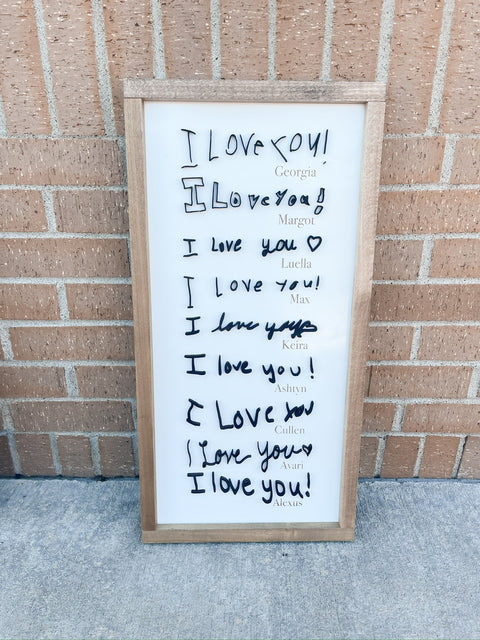 I LOVE YOU!
Georgia
I Love You!
Margot
I love you ♡
Luella
I Love You!
Max
I love you
Keira
I love you!
Ashtyn
I Love You
Cullen
I Love You ♡
Avari
I love you!
Alexus